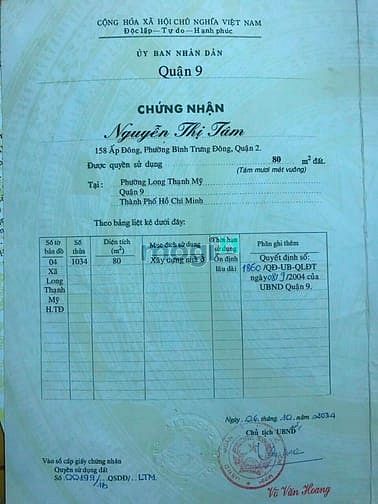 CỘNG HÒA XÃ HỘI CHỦ NGHĨA VIỆT NAM
Độc lập - Tự do - Hạnh phúc
ỦY BAN NHÂN DÂN
Quận 9
CHỨNG NHẬN
Nguyễn Thị Tám
158 Ấp Đông, Phường Bình Trưng Đông, Quận 2.
Được quyền sử dụng 80 m² đất.
(Tám mươi mét vuông)
Tại : Phường Long Thạnh Mỹ
Quận 9
Thành Phố Hồ Chí Minh
Theo bảng liệt kê dưới đây:
Số tờ bản đồ
Số thửa
Diện tích (m²)
Mục đích sử dụng
Thời hạn sử dụng
Phần ghi thêm
04 Xã Long Thạnh Mỹ H.TĐ
1034
80
Xây dựng nhà ở
Ổn định lâu dài
Quyết định số:
1860/QĐ-UB-QLĐT
/9/2004 của
UBND Quận 9.
mogi
Ngày 06 tháng 10 năm 2004
Chủ tịch UBND
Vào sổ cấp giấy chứng nhận
Quyền sử dụng đất
Số 00199/1b QSDĐ/ LTM.
Võ Văn Hoang